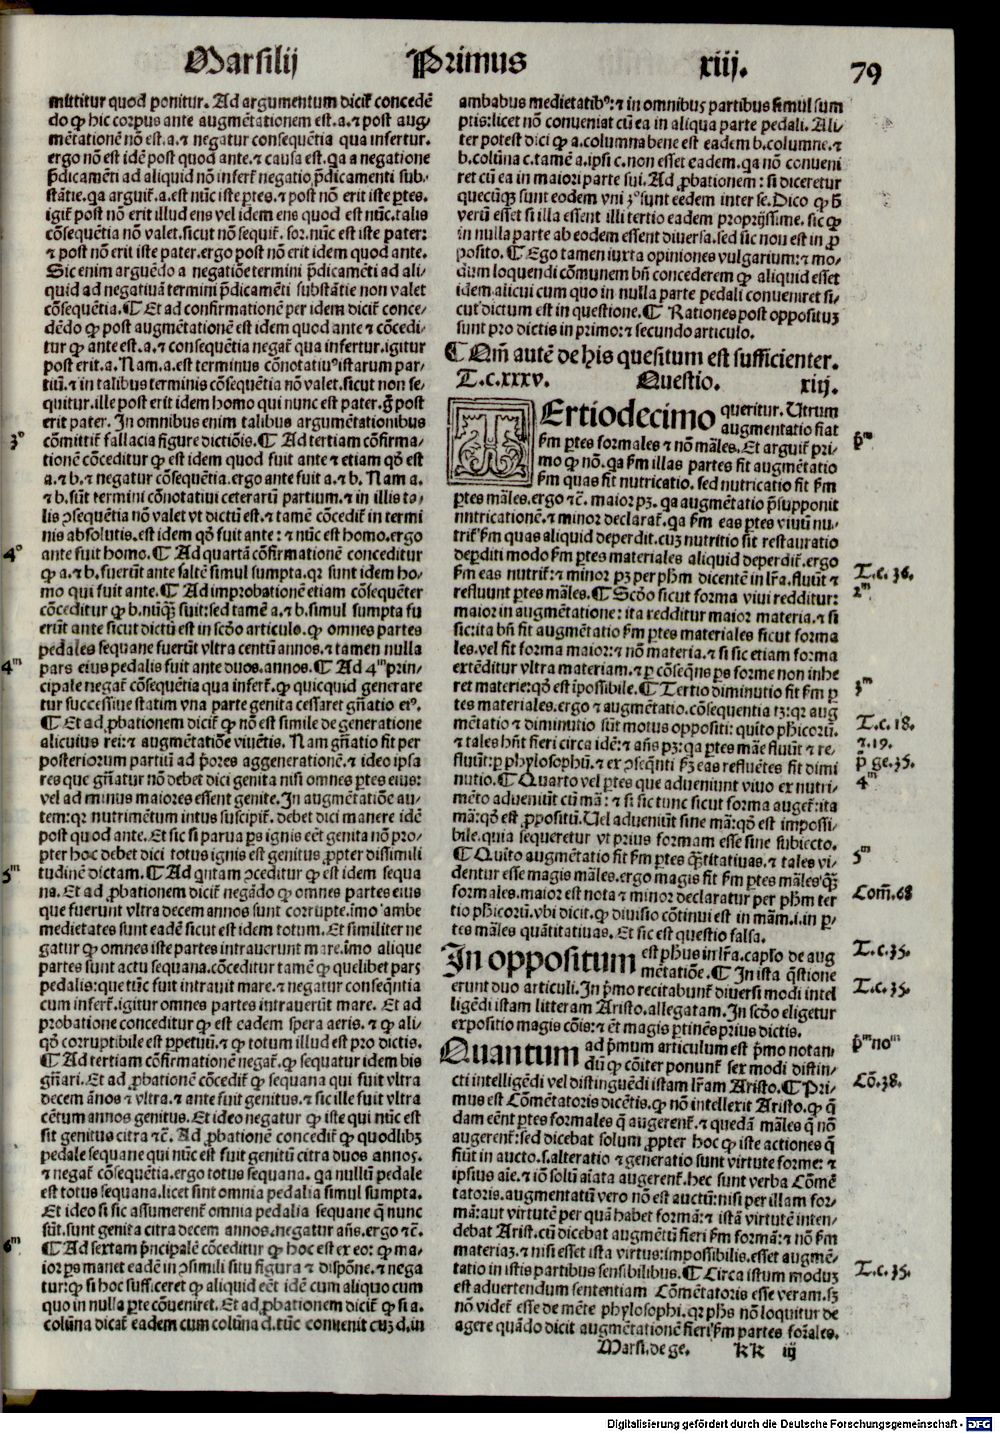 Marsilij Primus xiij. 79
mittitur quod ponitur. Ad argumentum dicit͛ concedē
do ꝙ hic corpus ante augmētationem est.a.⁊ post aug/
mētationē nō est.a.⁊ negatur consequētia qua infertur.
ergo nō est idē post quod ante.⁊ causa est.qa a negatione
p̄dicamēti ad aliquid nō infert͛ negatio p̄dicamenti sub/
statie.qa arguit͛.a.est nūc iste ꝑtes.⁊ post nō erit iste ꝑtes.
igit͛ post nō erit illud ens vel idem ens quod est nūc.talis
cōsequētia nō valet.sicut nō sequit͛.sor.nūc est iste pater:
⁊ post nō erit iste pater.ergo post nō erit idem quod ante.
Sic enim arguēdo a negatiōe termini p̄dicamēti ad ali/
quid ad negatiuā termini p̄dicamēti substātie non valet
cōsequētia.¶ Et ad confirmationē per idem dicit͛ conce/
dēdo ꝙ post augmētationē est idem quod ante ⁊ cōcedi/
tur ꝙ ante est.a.⁊ consequētia negat͛ qua infertur.igitur
post erit.a.Nam.a.est terminus cōnotatiuꝰ istarum par/
tiū.⁊ in talibus terminis cōsequētia nō valet.sicut non se/
quitur.ille post erit idem homo qui nunc est pater.g̊ post
erit pater. In omnibus enim talibus argumētationibus
3º cōmittit͛ fallacia figure dictiōis.¶ Ad tertiam cōfirma/
tionē cōceditur ꝙ est idem quod fuit ante ⁊ etiam qd̄ est
a.⁊ b.⁊ negatur cōsequētia.ergo ante fuit a.⁊ b. Nam a.
⁊ b.sūt termini cōnotatiui ceterarū partium.⁊ in illis ta/
lis ꝯsequētia nō valet vt dictū est.⁊ tamē cōcedit͛ in termi
nis absolutis.est idem qd̄ fuit ante:⁊ nūc est homo.ergo
4º ante fuit homo.¶ Ad quartā cōfirmationē conceditur
ꝙ a.⁊ b.fuerūt ante saltē simul sumpta.qr sunt idem ho/
mo qui fuit ante.¶ Ad improbationē etiam cōsequēter
cōceditur ꝙ b.nūqȝ fuit:sed tamē a.⁊ b.simul sumpta fu
erūt ante sicut dictū est in scd̄o articulo.ꝙ omnes partes
pedales sequane fuerūt vltra centū annos.⁊ tamen nulla
4ᵐ pars eius pedalis fuit ante duos.annos.¶ Ad 4ᵐ prin/
cipale negat͛ cōsequētia qua infert͛.ꝙ quicquid generare
tur successiue statim vna parte genita cessaret gn̄atio eiꝰ.
¶ Et ad ꝓbationem dicit͛ ꝙ nō est simile de generatione
alicuius rei:⁊ augmētatiōe viuētis. Nam gn̄atio fit per
posteriorum partiū ad p̄ores aggenerationē.⁊ ideo ipsa
res que gn̄atur nō debet dici genita nisi omnes ꝑtes eius:
vel ad minus maiores essent genite.In augmētatiōe au/
tem:qr nutrimētum intus suscipit͛.debet dici manere idē
post quod ante.Et sic si parua ꝑs ignis eēt genita nō pro/
pter hoc debet dici totus ignis est genitus ꝓpter dissimili
5ᵐ tudinē dictam.¶ Ad qntam ꝯceditur ꝙ est idem sequa
na.Et ad ꝓbationem dicit͛ negādo ꝙ omnes partes eius
que fuerunt vltra decem annos sunt corrupte.īmo ambe
medietates sunt eadē sicut est idem totum.Et similiter ne
gatur ꝙ omnes iste partes intrauerunt mare.īmo alique
partes sunt actu sequana.cōceditur tamē ꝙ quelibet pars
pedalis:que tūc fuit intrauit mare.⁊ negatur conseqn̄tia
cum infert͛.igitur omnes partes intrauerūt mare. Et ad
probatione conceditur ꝙ est eadem spera aeris.⁊ ꝙ ali/
qd̄ corruptibile est ꝑpetuū.⁊ ꝙ totum illud est pro dictis.
¶ Ad tertiam cōfirmationē negat͛.ꝙ sequatur idem bis
gn̄ari.Et ad ꝓbationē cōcedit͛ ꝙ sequana qui fuit vltra
decem ānos ⁊ vltra.⁊ ante fuit genitus.⁊ sic ille fuit vltra
cētum annos genitus. Et ideo negatur ꝙ iste qui nūc est
sit genitus citra ⁊c̄. Ad ꝓbationē concedit͛ ꝙ quodlibȝ
pedale sequane qui nūc est fuit genitū citra duos annos.
⁊ negat͛ cōsequētia.ergo totus sequana. qa nullū pedale
est totus sequana.licet sint omnia pedalia simul sumpta.
Et ideo si sic assumerent͛ omnia pedalia sequane q̄ nunc
sūt.sunt genita citra decem annos.negatur an̄s.ergo ⁊c̄.
6ᵐ ¶ Ad sextam p̄ncipalē cōceditur ꝙ hoc est ex eo: ꝙ ma/
ior ꝑs manet eadē in ꝯsimili situ figura ⁊ dispōne.⁊ nega
tur:ꝙ si hoc sufficeret ꝙ aliquid eēt idē cum aliquo cum
quo in nulla ꝑte cōueniret. Et ad ꝓbationem dicit͛ ꝙ si a.
colūna dicat͛ eadem cum colūna d.tūc conuenit cuȝ d.in
ambabus medietatibꝰ:⁊ in omnibus partibus simul sum
ptis:licet nō conueniat cū ea in aliqua parte pedali. Ali/
ter potest dici ꝙ a.columna bene est eadem b.columne.⁊
b.colūna c.tamē a.ipsi c.non esset eadem.qa nō conueni
ret cū ea in maiori parte sui.Ad ꝓbationem:si diceretur
quecūqȝ sunt eodem vni 3ꝰ sunt eedem inter se.Dico ꝙ b̄
verū esset si illa essent illi tertio eadem proprijssime. sic ꝙ
in nulla parte ab eodem essent diuersa.sed sic non est in ꝓ
posito.¶ Ego tamen iuxta opiniones vulgarium:⁊ mo/
dum loquendi cōmunem bn̄ concederem ꝙ aliquid esset
idem alicui cum quo in nulla parte pedali conueniret si/
cut dictum est in questione.¶ Rationes post oppositūȝ
sunt pro dictis in primo:⁊ secundo articulo.
¶ Qm̄ autē de his quesitum est sufficienter.
T.c.xxxv. Questio. xiij.
TErtiodecimo queritur. Utrum
augmentatio fiat
fm̄ ꝑtes formales ⁊ nō māles.Et arguit͛ pri/ p̄ᵐ
mo ꝙ nō.qa fm̄ illas partes fit augmētatio
fm̄ quas fit nutricatio. sed nutricatio fit fm̄
ꝑtes māles.ergo ⁊c̄. maior pȝ. qa augmētatio p̄supponit
nutricationē.⁊ minor declarat͛.qa fm̄ eas ꝑtes viuū nu/
trit͛ fm̄ quas aliquid deperdit.cuȝ nutritio sit restauratio
deperditi modo fm̄ ꝑtes materiales aliquid deperdit͛.ergo
fm̄ eas nutrit͛:⁊ minor pȝ per phm̄ dicentē in lr̄a.fluūt ⁊ T.c. 36.
refluunt ꝑtes māles.¶ Scd̄o sicut forma viui redditur: 2ᵐ
maior in augmētatione:ita redditur maior materia.⁊ si
sic:ita bn̄ fit augmētatio fm̄ ꝑtes materiales sicut forma
les.vel fit forma maior:⁊ nō materia.⁊ si sic etiam forma
extēditur vltra materiam.⁊ ꝑ cōseqn̄s ꝑs forme non inhe
ret materie:qd̄ est ipossibile.¶ Tertio diminutio fit fm̄ ꝑ 3ᵐ
tes materiales.ergo ⁊ augmētatio.cōsequentia tȝ:qr aug
mētatio ⁊ diminutio sūt motus oppositi: quīto ph̄icorū. T.c. 18.
⁊ tales hn̄t fieri circa idē:⁊ an̄s pȝ:qa ꝑtes māe fluūt ⁊ re/ ⁊.19.
fluūt:ꝑ phylosophū.⁊ ex ꝯseqn̄ti fȝ eas refluētes fit dimi p̄ ge.35.
nutio.¶ Quarto vel ꝑtes que adueniunt viuo ex nutri/ 4ᵐ
mēto adueniūt cū mā:⁊ si sic tunc sicut forma auget͛:ita
mā:qd̄ est ꝓpositū.Uel adueniūt sine mā:qd̄ est impossi/
bile.quia sequeretur vt prius formam esse sine subiecto.
¶ Quīto augmētatio fit fm̄ ꝑtes q̄titatiuas.⁊ tales vi/ 5ᵐ
dentur esse magis māles.ergo magis fit fm̄ ꝑtes māles qȝ̄
formales.maior est nota ⁊ minor declaratur per phm̄ ter Com̄.68
tio ph̄icorū.vbi dicit.ꝙ diuisio cōtinui est in mām.i.in ꝑ/
tes māles quātitatiuas. Et sic est questio falsa.
In oppositum est ph̄us in lr̄a.caplo de aug T.c.35.
mētatiōe.¶ In ista q̄stione
erunt duo articuli.In p̄mo recitabunt͛ diuersi modi intel T.c.35.
ligēdi istam litteram Aristo.allegatam.In scd̄o eligetur
expositio magis cōis:⁊ ēt magis ꝑtinēs prius dictis.
Quantum ad p̄mum articulum est p̄mo notan/ p̄ᵐ noᵐ
dū ꝙ cōiter ponunt͛ sex modi distin/
cti intelligēdi vel distinguēdi istam lr̄am Aristo.¶ Pri/ Cō.38.
mus est Cōmētatoris dicētis.ꝙ nō intellexit Aristo.ꝙ q̄
dam eēnt ꝑtes formales q̄ augerent͛.⁊ quedā māles q̄ nō
augerent͛:sed dicebat solum ꝓpter hoc ꝙ iste actiones q̄
fiūt in aucto.s.alteratio ⁊ generatio sunt virtute forme:⁊
ipsius aīe.⁊ iō solū aīata augerent͛.hec sunt verba Cōmē
tatoris.augmentatū vero nō est auctū:nisi per illam for/
mā:aut virtutē per quā habet formā:⁊ istā virtutē inten/
debat Arist.cū dicebat augmētū fieri fm̄ formā:⁊ nō fm̄
materiaȝ.⁊ nisi esset ista virtus:impossibilis.esset augmē/
tatio in istis partibus sensibilibus.¶ Circa istum modūȝ T.c.35.
est aduertendum sententiam Cōmētatoris esse veram.sȝ
nō videt͛ esse de mēte phylosophi.qr ph̄s nō loquitur de
agere quādo dicit augmētationē fieri fm̄ partes forāles.
Marsi.de ge. kk iij
Digitalisierung gefördert durch die Deutsche Forschungsgemeinschaft - DFG